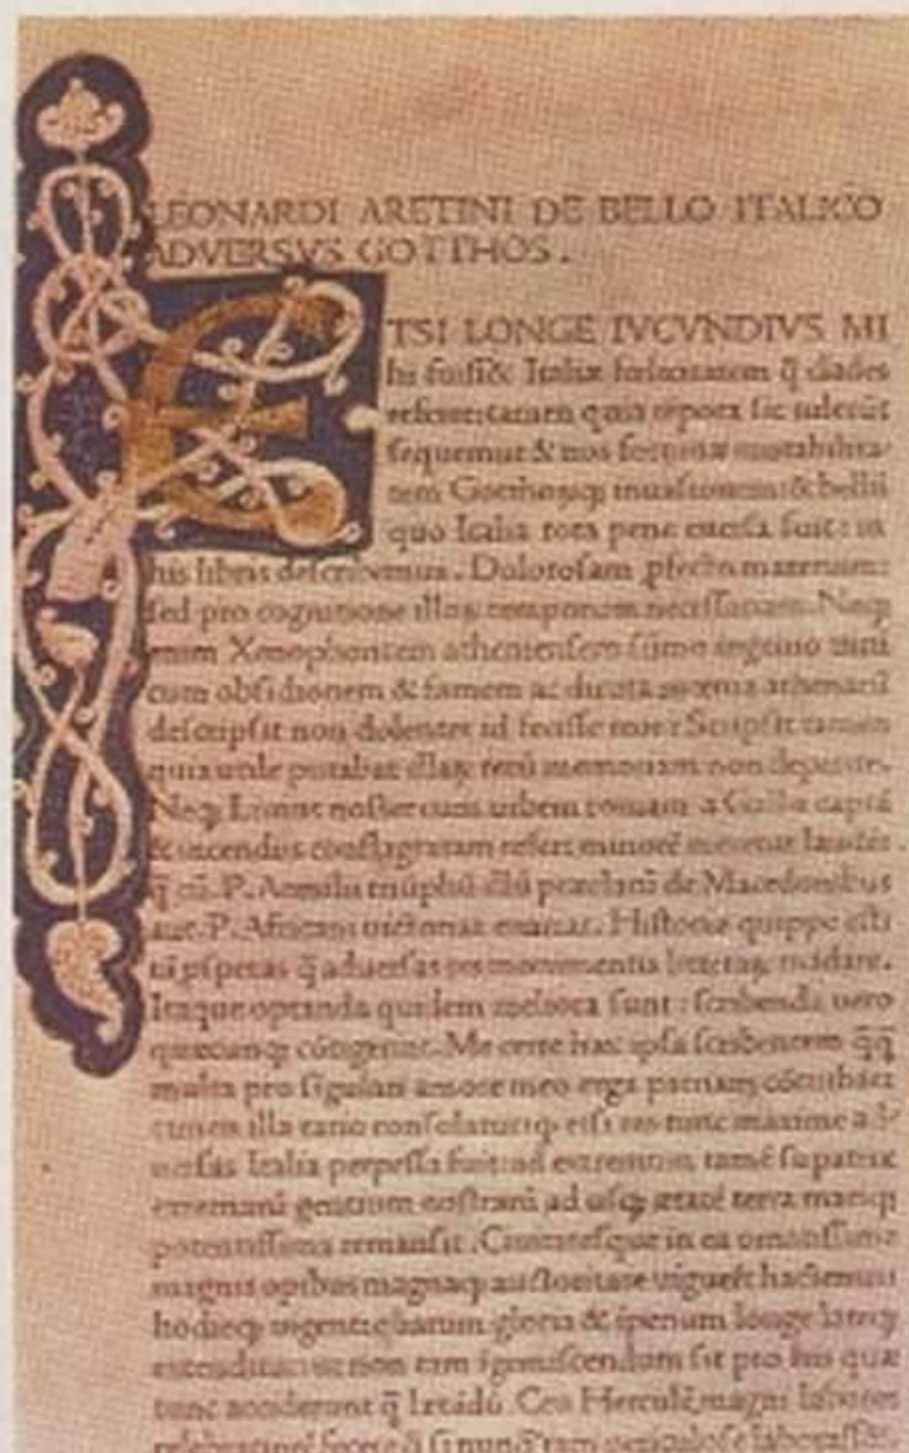 LEONARDI ARETINI DE BELLO ITALICO
ADVERSVS GOTTHOS.
ETSI LONGE IVCVNDIVS MI
hi fuiſſ& Italiæ q̄ clades
quia tēpora ſic tulerūt
ſequemur & nos fortunæ mutabilita
tem Gothoꝝq; inuaſionem & bellū
quo Italia tota pene euerſa fuit: in
his libris deſcribemus. Doloroſam ꝓfecto materiam:
ſed pro cognitione illoꝝ temporum neceſſariam. Neq;
enim Xenophontem athenienſem ſūmo ingenio uirū
cum obſidionem & famem ac diruta mœnia athenarū
deſcripſit non dolenter id feciſſe reor: Scripſit tamen
quia utile putabat illaꝝ rerū memoriam non deperire.
Neq; Liuius noſter cum urbem romam a Gallis captā
& incendiis conflagratam refert minorē meretur laudē:
q̄ cū .P. Aemilii triūphū præclarū de Macedonibus
aut .P. Africani uictorias enarrat. Hiſtoriæ quippe eſt:
tā ꝓſperas q̄ aduerſas res monumentis litteraꝝ mādare.
Itaque optanda quidem meliora ſunt: ſcribenda uero
quæcunq; cōtigerint. Me certe hæc ipſa ſcribentem
multa pro ſīgulari amore meo erga patriam
tamen illa ratio conſolatur q etſi res tunc maxime ad
uerſas Italia perpeſſa fuit: ad extremum tamē
gentium ad uſq; ætatē terra mariq;
potentiſſima remanſit. Ciuitateſque in ea ornatiſſimæ
magnis opibus magnaq; auctoritate uiguerūt hactenus:
hodieq; uigent: quarum gloria & īperium longe lateq;
non tam īgemiſcendum ſit pro his quæ
tunc acciderunt q̄ lætādū. Ceu Herculē magni labores